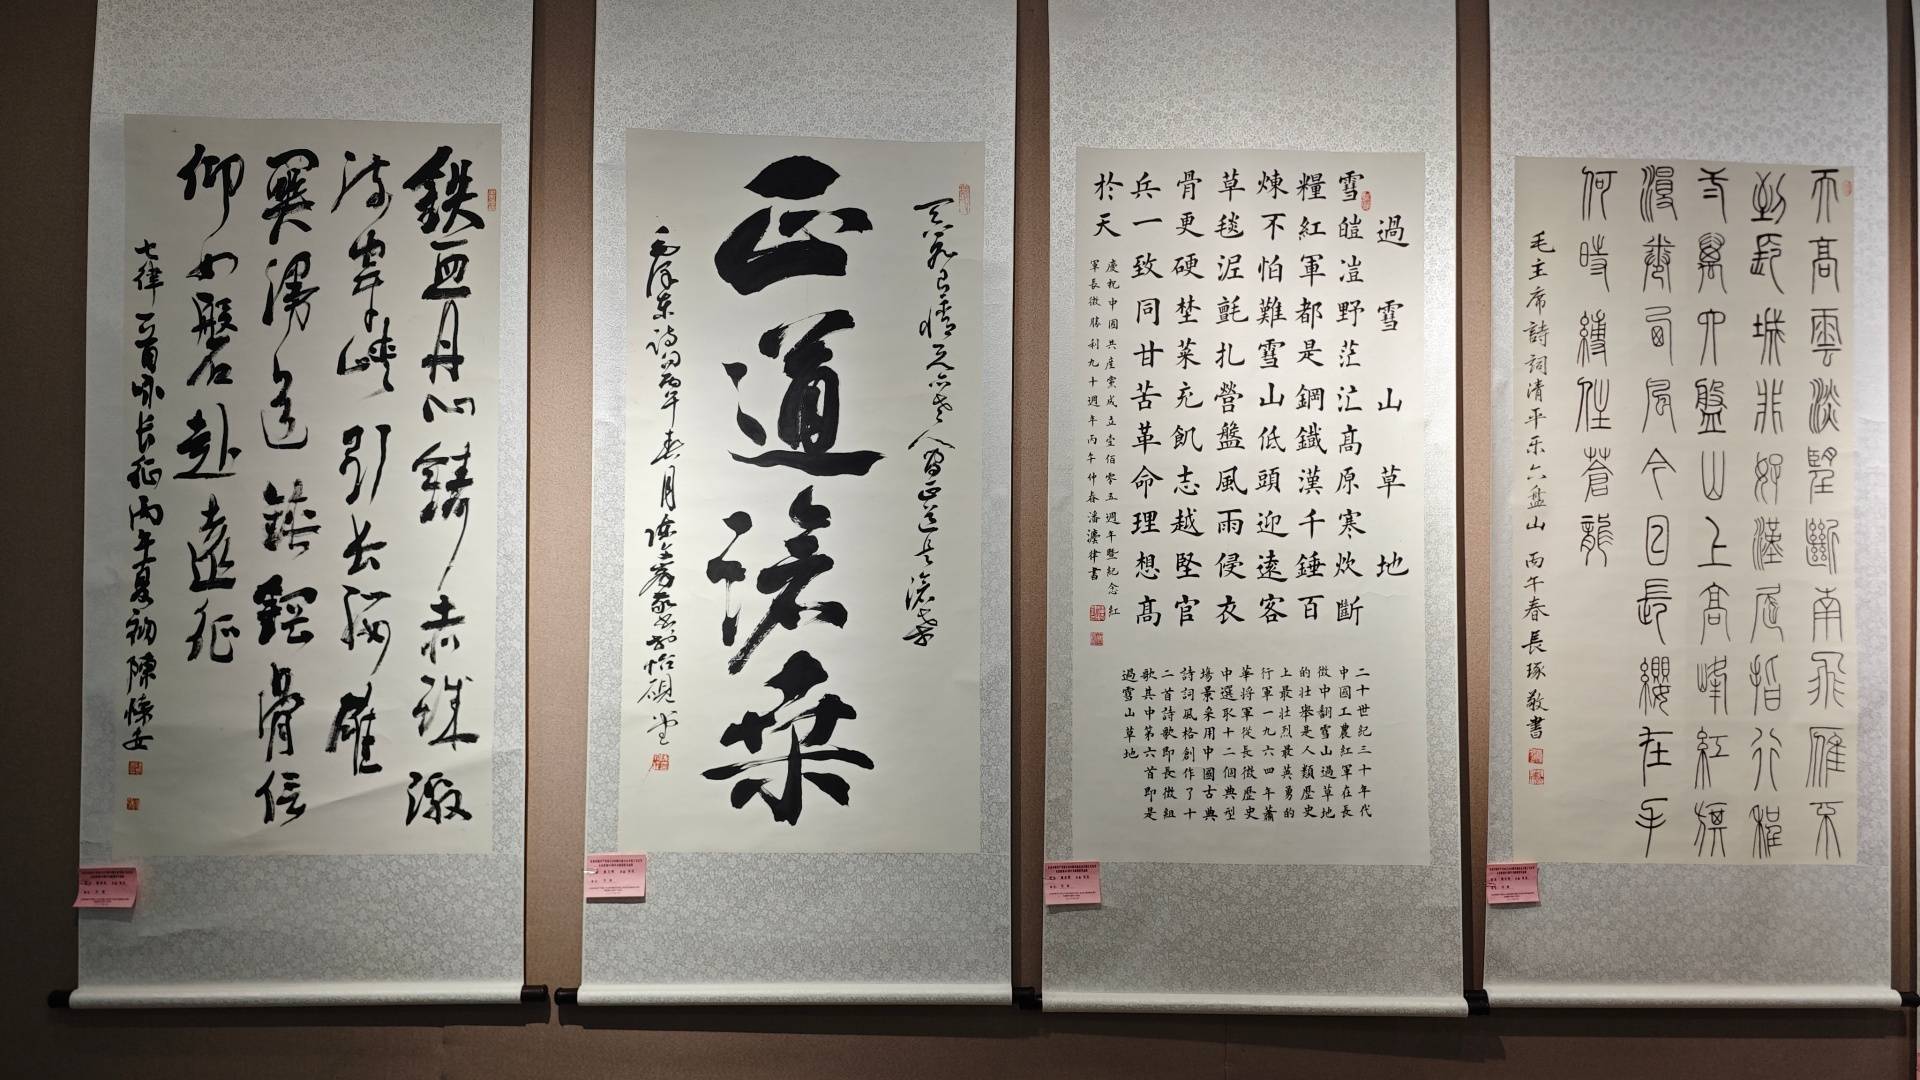 鐵血丹心鑄赤誠激
流穿峽引長纓雄
關漫道鑄鋼骨信
仰如磐赴遠征
七律一首咏長征丙午夏初陳懷安
天若有情天亦老人間正道是滄桑
正道滄桑
毛澤東詩句丙午年春月徐金芳敬書於怡硯堂
過雪山草地
雪皚皚野茫茫高原寒炊斷
糧紅軍都是鋼鐵漢千錘百
煉不怕難雪山低頭迎遠客
草毯泥氈扎營盤風雨侵衣
骨更硬埜菜充飢志越堅官
兵一致同甘苦革命理想高
於天
慶祝中國共産黨成立壹佰零五週年暨紀念紅
軍長徵勝利九十週年丙午仲春潘濃律書
二十世紀三十年代
中國工農紅軍在長
徵中翻雪山過草地
的壯舉是人類歷史
上最壯烈最英勇的
行軍一九六四年蕭
華將軍從長徵歷史
中選取十二個典型
場景采用中國古典
詩詞風格創作了十
二首詩歌即長徵組
歌其中第六首即是
過雪山草地
天高雲淡望斷南飛雁不
到長城非好漢屈指行程
二萬六盤山上高峰紅旗
漫卷西風今日長纓在手
何時縛住蒼龍
毛主席詩詞清平乐六盘山 丙午春長琢敬書